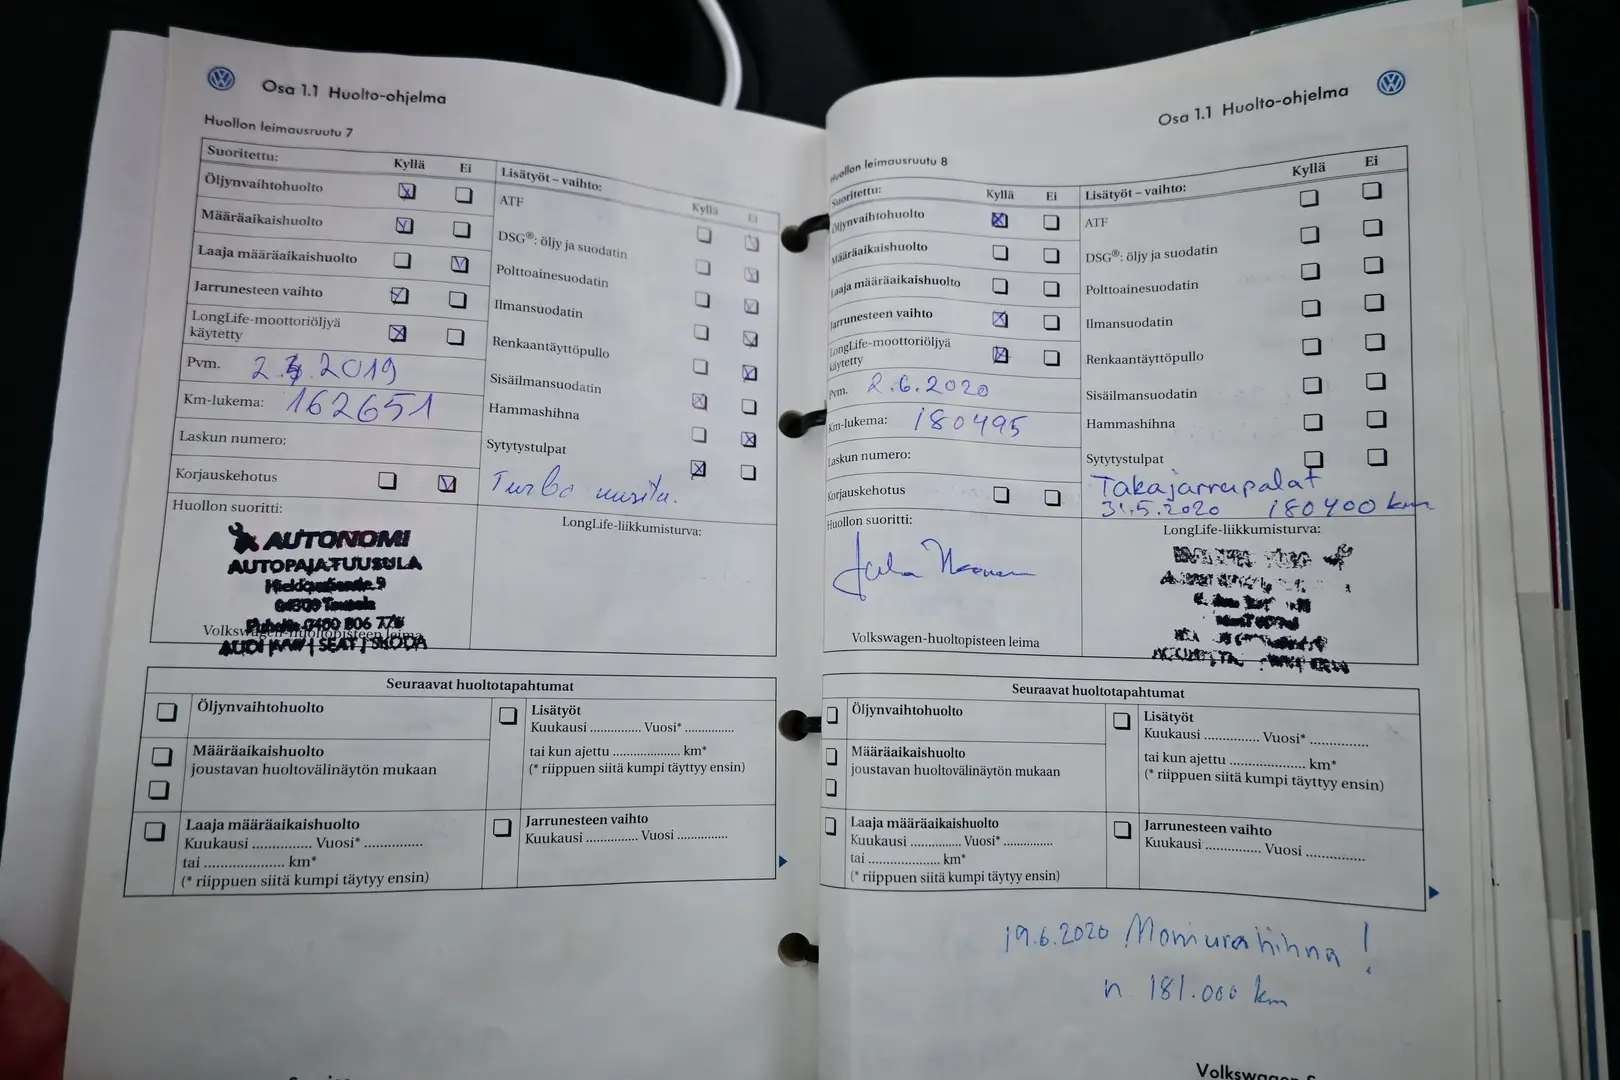 Osa 1.1 Huolto-ohjelma
Huollon leimausruutu 7
Suoritettu:
Kyllä Ei
Öljynvaihtohuolto
Määräaikaishuolto
Laaja määräaikaishuolto
Jarrunesteen vaihto
LongLife-moottoriöljyä
käytetty
Pvm. 2. .2019
Km-lukema: 162651
Laskun numero:
Korjauskehotus
Lisätyöt – vaihto:
Kyllä Ei
ATF
DSG®: öljy ja suodatin
Polttoainesuodatin
Ilmansuodatin
Renkaantäyttöpullo
Sisäilmansuodatin
Hammashihna
Sytytystulpat
Turbo uusittu.
Huollon suoritti:
AUTONOMI
AUTOPAJA TUUSULA
Tuusula
0400 806 778
AUDI | VW | SEAT | SKODA
Volkswagen-huoltopisteen leima
LongLife-liikkumisturva:
Seuraavat huoltotapahtumat
Öljynvaihtohuolto
Määräaikaishuolto
joustavan huoltovälinäytön mukaan
Laaja määräaikaishuolto
Kuukausi .............. Vuosi* ..............
tai .................... km*
(* riippuen siitä kumpi täytyy ensin)
Lisätyöt
Kuukausi ............. Vuosi* .............
tai kun ajettu .................. km*
(* riippuen siitä kumpi täyttyy ensin)
Jarrunesteen vaihto
Kuukausi ............. Vuosi .............
Osa 1.1 Huolto-ohjelma
Huollon leimausruutu 8
Suoritettu:
Kyllä Ei
Öljynvaihtohuolto
Määräaikaishuolto
Laaja määräaikaishuolto
Jarrunesteen vaihto
LongLife-moottoriöljyä
käytetty
Pvm. 2.6.2020
Km-lukema: 180495
Laskun numero:
Korjauskehotus
Lisätyöt – vaihto:
Kyllä Ei
ATF
DSG®: öljy ja suodatin
Polttoainesuodatin
Ilmansuodatin
Renkaantäyttöpullo
Sisäilmansuodatin
Hammashihna
Sytytystulpat
Takajarrupalat
31.5.2020 180400 km
Huollon suoritti:
Volkswagen-huoltopisteen leima
LongLife-liikkumisturva:
Seuraavat huoltotapahtumat
Öljynvaihtohuolto
Määräaikaishuolto
joustavan huoltovälinäytön mukaan
Laaja määräaikaishuolto
Kuukausi ............. Vuosi* .............
tai .................... km*
(* riippuen siitä kumpi täytyy ensin)
Lisätyöt
Kuukausi .............. Vuosi* ..............
tai kun ajettu .................. km*
(* riippuen siitä kumpi täyttyy ensin)
Jarrunesteen vaihto
Kuukausi .............. Vuosi ..............
19.6.2020 Moniurahihna!
n. 181.000 km
Volkswagen